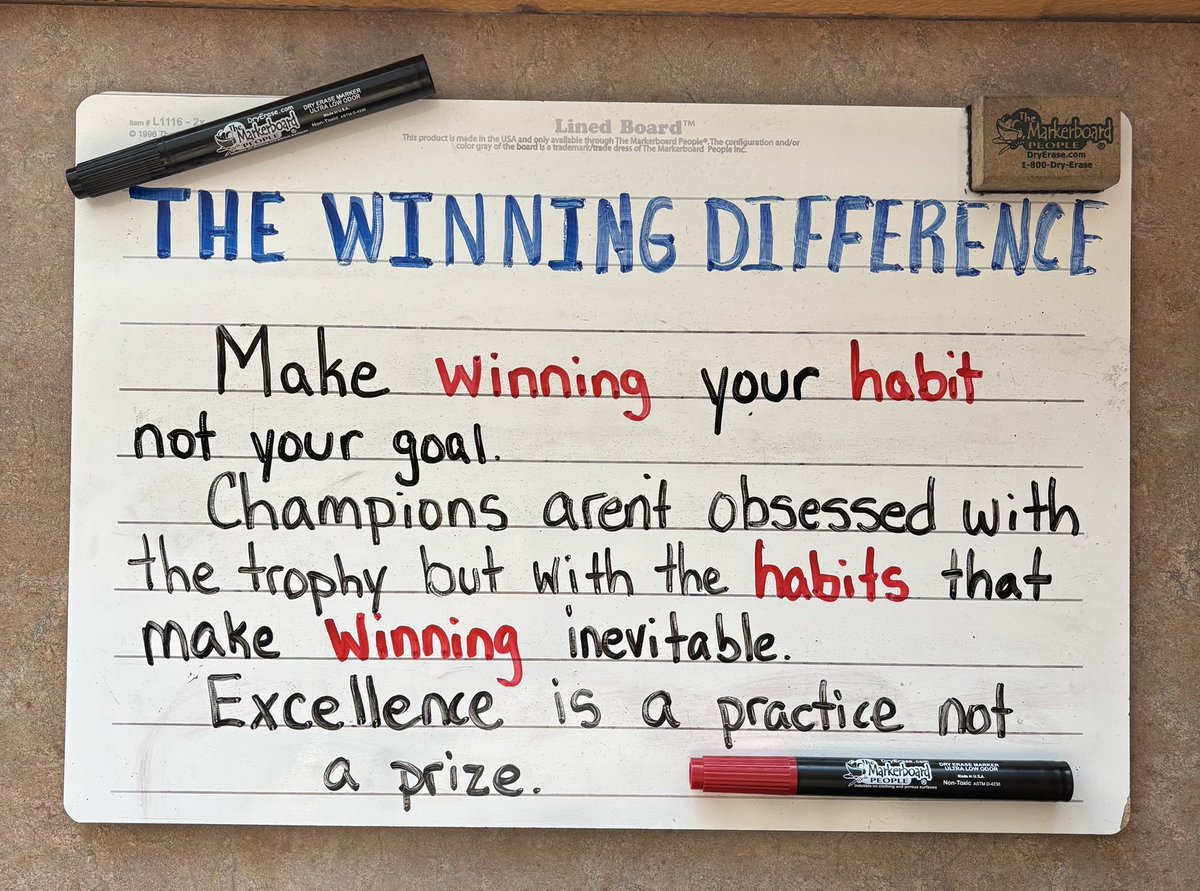 DRY ERASE MARKER
ULTRA LOW ODOR
Made in U.S.A.
Non-Toxic ASTM D-4236
DryErase.com
The Markerboard
PEOPLE
Item # L1116 - 2x
© 1996 The
Lined Board™
This product is made in the USA and only available through The Markerboard People®. The configuration and/or
color gray of the board is a trademark/trade dress of The Markerboard People Inc.
The Markerboard
PEOPLE
DryErase.com
1-800-Dry-Erase
THE WINNING DIFFERENCE
Make winning your habit
not your goal.
Champions aren't obsessed with
the trophy but with the habits that
make winning inevitable.
Excellence is a practice not
a prize.
DryErase.com
The Markerboard
PEOPLE
indelible on clothing and porous surfaces
DRY ERASE MARKER
ULTRA LOW ODOR
Made in U.S.A.
Non-Toxic ASTM D-4236